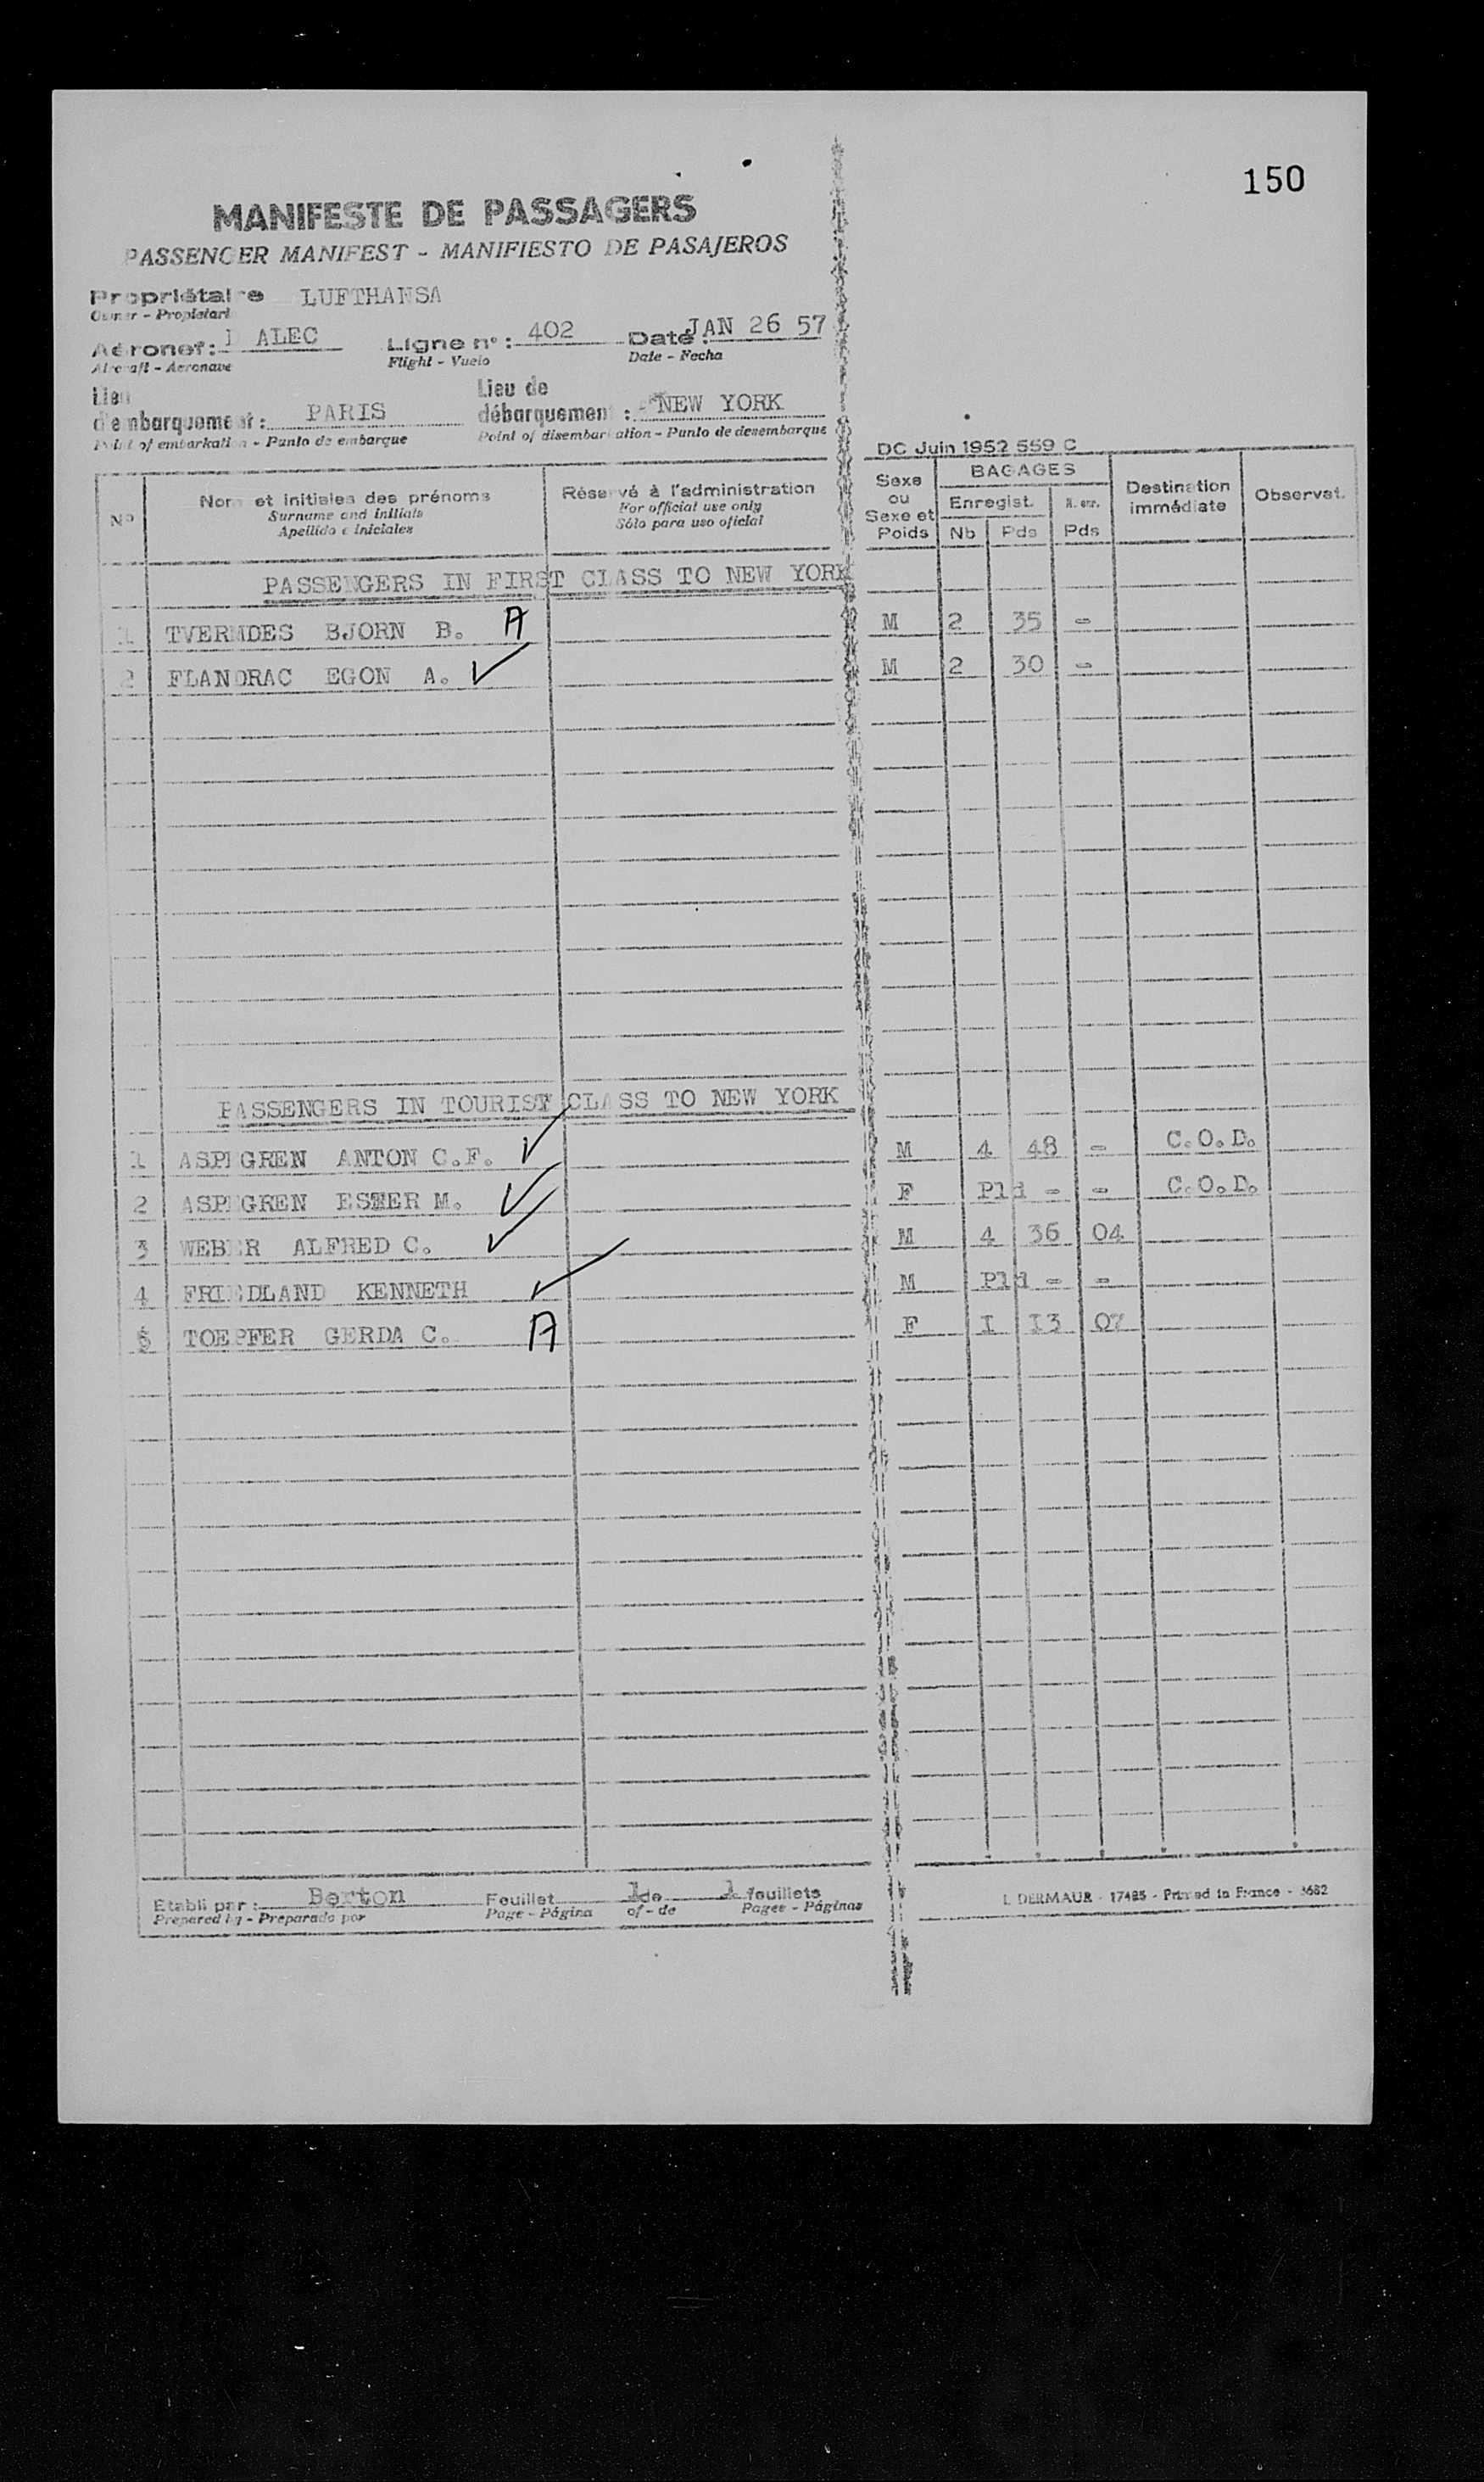 150
MANIFESTE DE PASSAGERS
PASSENGER MANIFEST - MANIFIESTO DE PASAJEROS
Propriétaire LUFTHANSA
Owner - Propietari
Aéronef: ALEC Ligne n° : 402 Date : JAN 26 57
Aircraft - Aeronave Flight - Vuelo Date - Fecha
Lieu d'embarquement : PARIS Lieu de débarquement : NEW YORK
Point of embarkation - Punto de embarque Point of disembarkation - Punto de desembarque
DC Juin 1952 559 C
N° Nom et initiales des prénoms Réservé à l'administration Sexe ou Sexe et Poids BAGAGES Destination immédiate Observat.
Surname and initials For official use only Enregist. N. enr.
Apellido e iniciales Sólo para uso oficial Nb Pds Pds
PASSENGERS IN FIRST CLASS TO NEW YORK
1 BJORN B. A M 2 35 -
2 FLANDRAC EGON A. ✓ M 2 30 -
PASSENGERS IN TOURIST CLASS TO NEW YORK
1 ASPEGREN ANTON C.F. ✓ M 4 48 - C.O.D.
2 ASPEGREN ESTER M. ✓ F Pld - - C.O.D.
3 WEBER ALFRED C. ✓ M 4 36 04
4 FRIEDLAND KENNETH ✓ M Pld - -
5 TOEPFER GERDA C. A F I I3 07
Etabli par : Berton Feuillet 1 de 1 feuillets
Prepared by - Preparado por Page - Página of - de Pages - Páginas
L. DERMAUR - 17485 - Printed in France - 3682